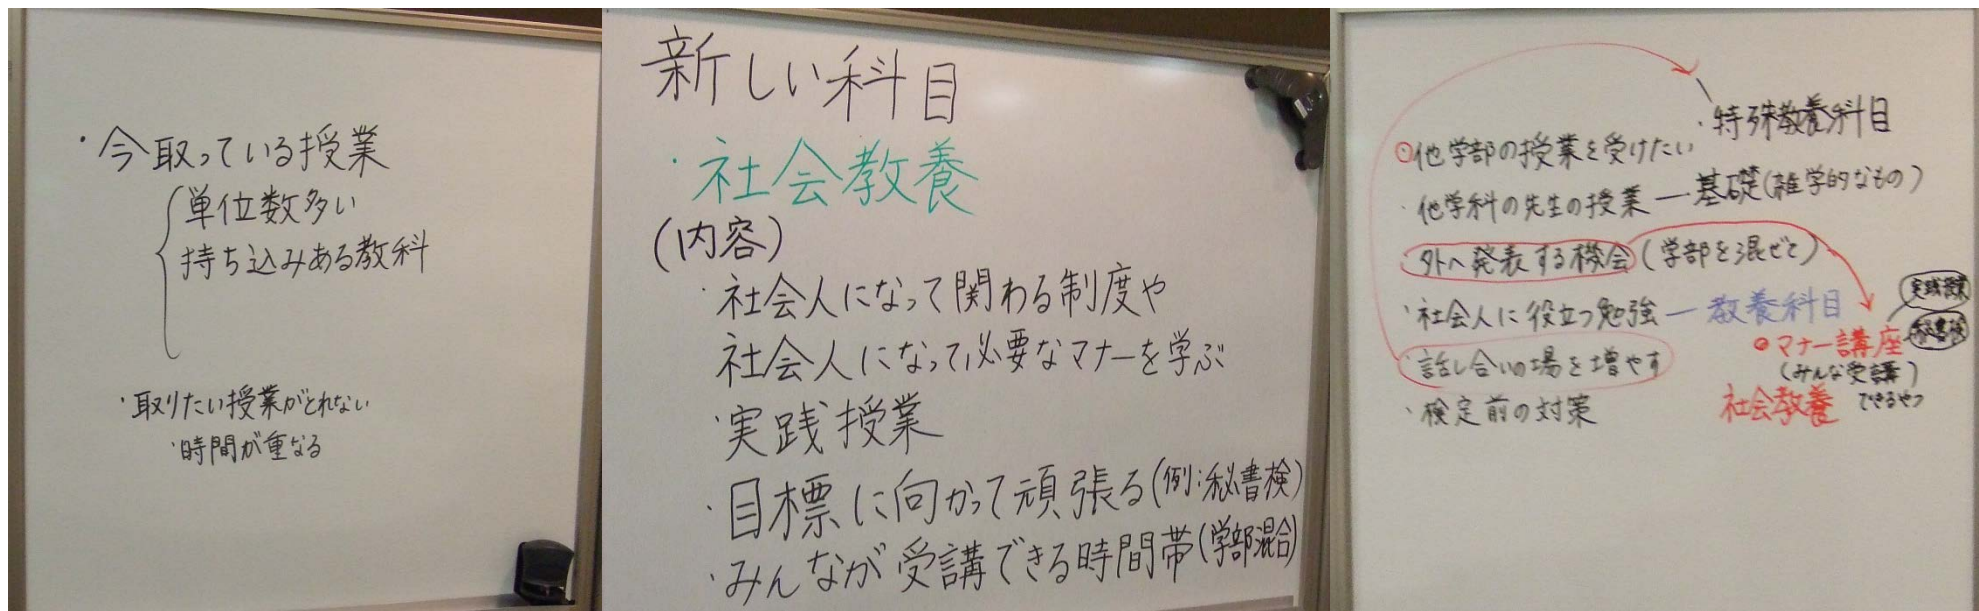 ・今取っている授業
単位数多い
持ち込みある教科
・取りたい授業がとれない
・時間が重なる
新しい科目
・社会教養
(内容)
・社会人になって関わる制度や
社会人になって必要なマナーを学ぶ
・実践授業
・目標に向かって頑張る(例:秘書検)
・みんなが受講できる時間帯(学部混合)
・特殊教養科目
○他学部の授業を受けたい
・他学科の先生の授業 ― 基礎(雑学的なもの)
・外へ発表する機会(学部を混ぜて)
・社会人に役立つ勉強 ― 教養科目
実践授業
秘書検
・話し合いの場を増やす
○マナー講座
(みんな受講)
できるやつ
・検定前の対策
社会教養